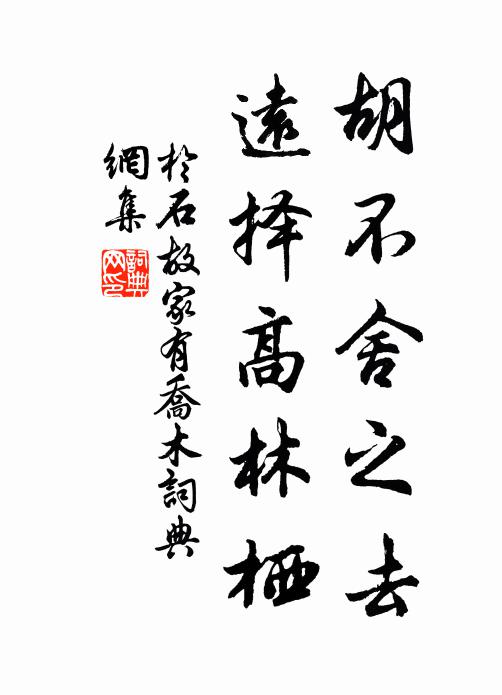 胡不舍之去
遠择高林栖
於石故家有喬木詞典
網集
詞典
网印